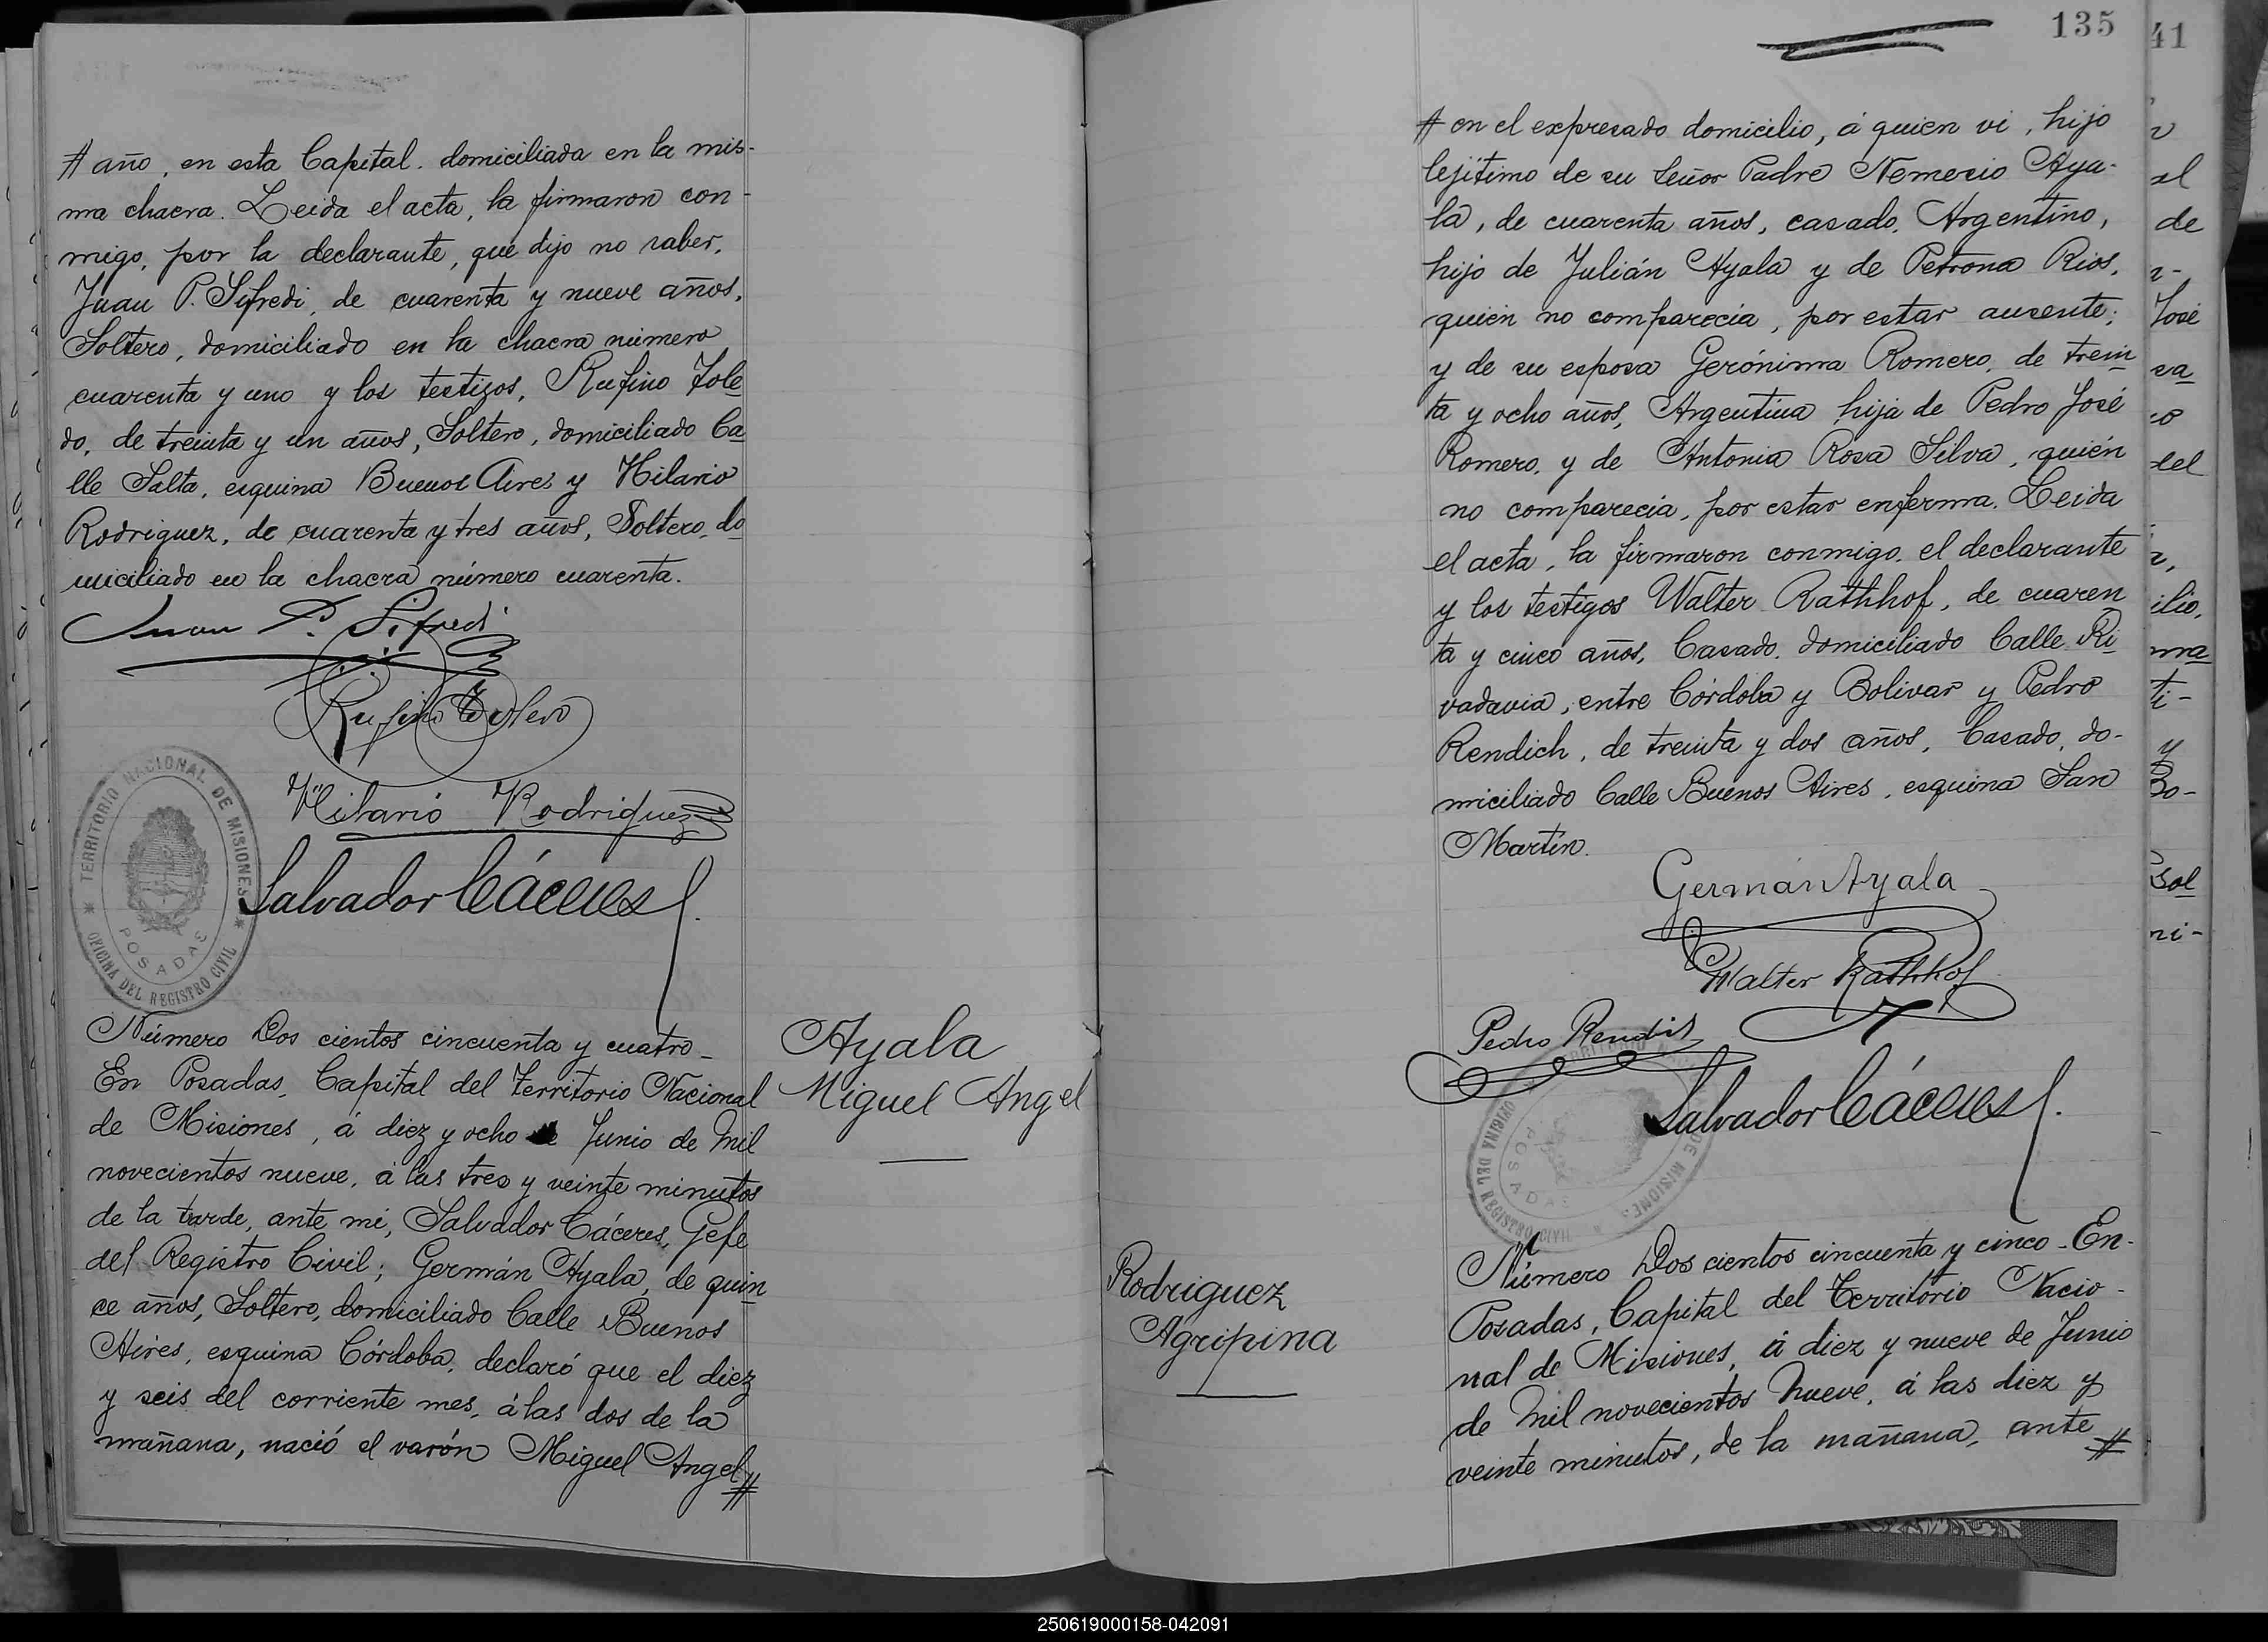 # año, en esta Capital. domiciliada en la mis-
ma chacra. Leida el acta, la firmaron con-
migo, por la declarante, que dijo no saber,
Juan P. Sifredi, de cuarenta y nueve años,
Soltero, domiciliado en la chacra número
cuarenta y uno y los testigos, Rufino Tole
do, de treinta y un años, Soltero, domiciliado Ca
lle Salta, esquina Buenos Aires y Hilario
Rodriguez, de cuarenta y tres años, Soltero, do
miciliado en la chacra número cuarenta.
Juan P. Sifredi
Rufino Toledo
Hilario Rodriguez
TERRITORIO NACIONAL DE MISIONES
OFICINA DEL REGISTRO CIVIL
POSADAS
Salvador Cáceres
Número Dos cientos cincuenta y cuatro-
En Posadas, Capital del Territorio Nacional
de Misiones, á diez y ocho de Junio de Mil
novecientos nueve, á las tres y veinte minutos
de la tarde, ante mi, Salvador Cáceres, Gefe
del Registro Civil; Germán Ayala, de quin
ce años, Soltero, domiciliado Calle Buenos
Aires, esquina Córdoba, declaró que el diez
y seis del corriente mes, á las dos de la
mañana, nació el varón Miguel Angel #
Ayala
Miguel Angel
135
# en el expresado domicilio, á quien vi, hijo
lejitimo de su Señor Padre Nemesio Aya-
la, de cuarenta años, casado, Argentino,
hijo de Julián Ayala y de Petrona Rios,
quien no comparecia, por estar ausente;
y de su esposa Gerónima Romero, de trein
ta y ocho años, Argentina hija de Pedro José
Romero, y de Antonia Rosa Silva, quién
no comparecia, por estar enferma. Leida
el acta, la firmaron conmigo, el declarante
y los testigos Walter Rathhof, de cuaren
ta y cinco años, Casado, domiciliado Calle Ri
vadavia, entre Córdoba y Bolivar y Pedro
Rendich, de treinta y dos años, Casado, do-
miciliado Calle Buenos Aires, esquina San
Martín.
Germán Ayala
Walter Rathhof
Pedro Rendich
TERRITORIO NACIONAL DE MISIONES
OFICINA DEL REGISTRO CIVIL
POSADAS
Salvador Cáceres
Rodriguez
Agripina
Número Dos cientos cincuenta y cinco-En-
Posadas, Capital del Territorio Nacio-
nal de Misiones, á diez y nueve de Junio
de Mil novecientos Nueve, á las diez y
veinte minutos, de la mañana, ante #
41
el
de
José
sa
del
ilio,
ma
ti-
y
Bo-
ni-
250619000158-042091